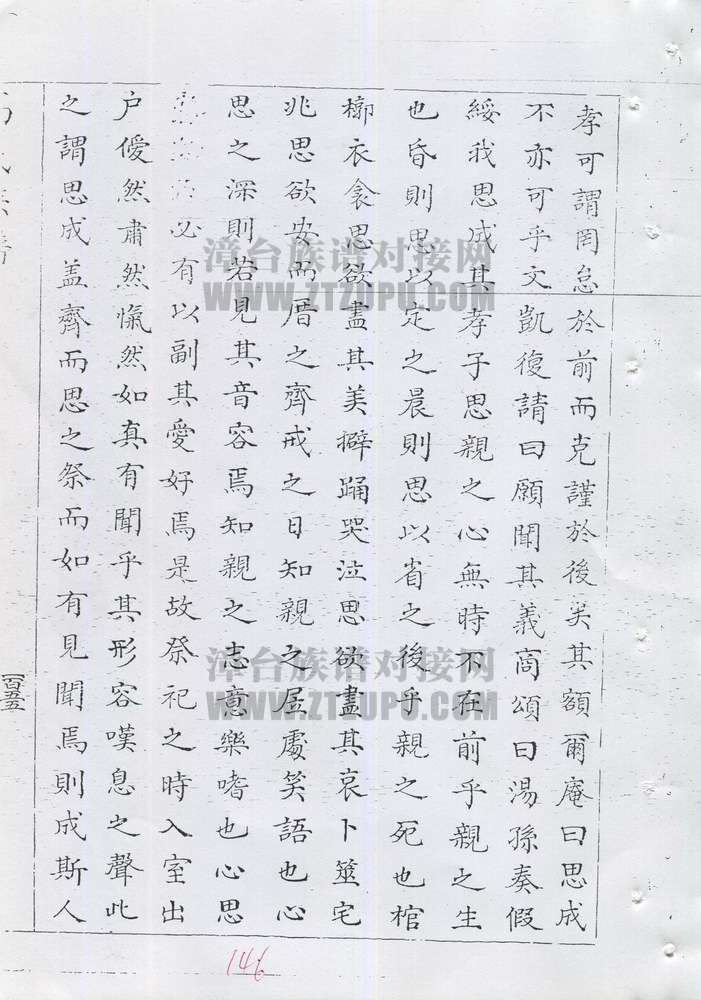 孝可謂罔怠於前而克謹於後矣其額爾庵曰思成
不亦可乎文凱復請曰願聞其義商頌曰湯孫奏假
綏我思成其孝子思親之心無時不在前乎親之生
也昏則思以定之晨則思以省之後乎親之死也棺
槨衣衾思欲盡其美擗踊哭泣思欲盡其哀卜筮宅
兆思欲安而厝之齊戒之日知親之居處笑語也心
思之深則若見其音容焉知親之志意樂嗜也心思
必有以副其愛好焉是故祭祀之時入室出
户僾然肅然愾然如真有聞乎其形容嘆息之聲此
之謂思成盖齊而思之祭而如有見聞焉則成斯人
一百五五
146
漳台族谱对接网
WWW.ZTZUPU.COM
漳台族谱对接网
WWW.ZTZUPU.COM